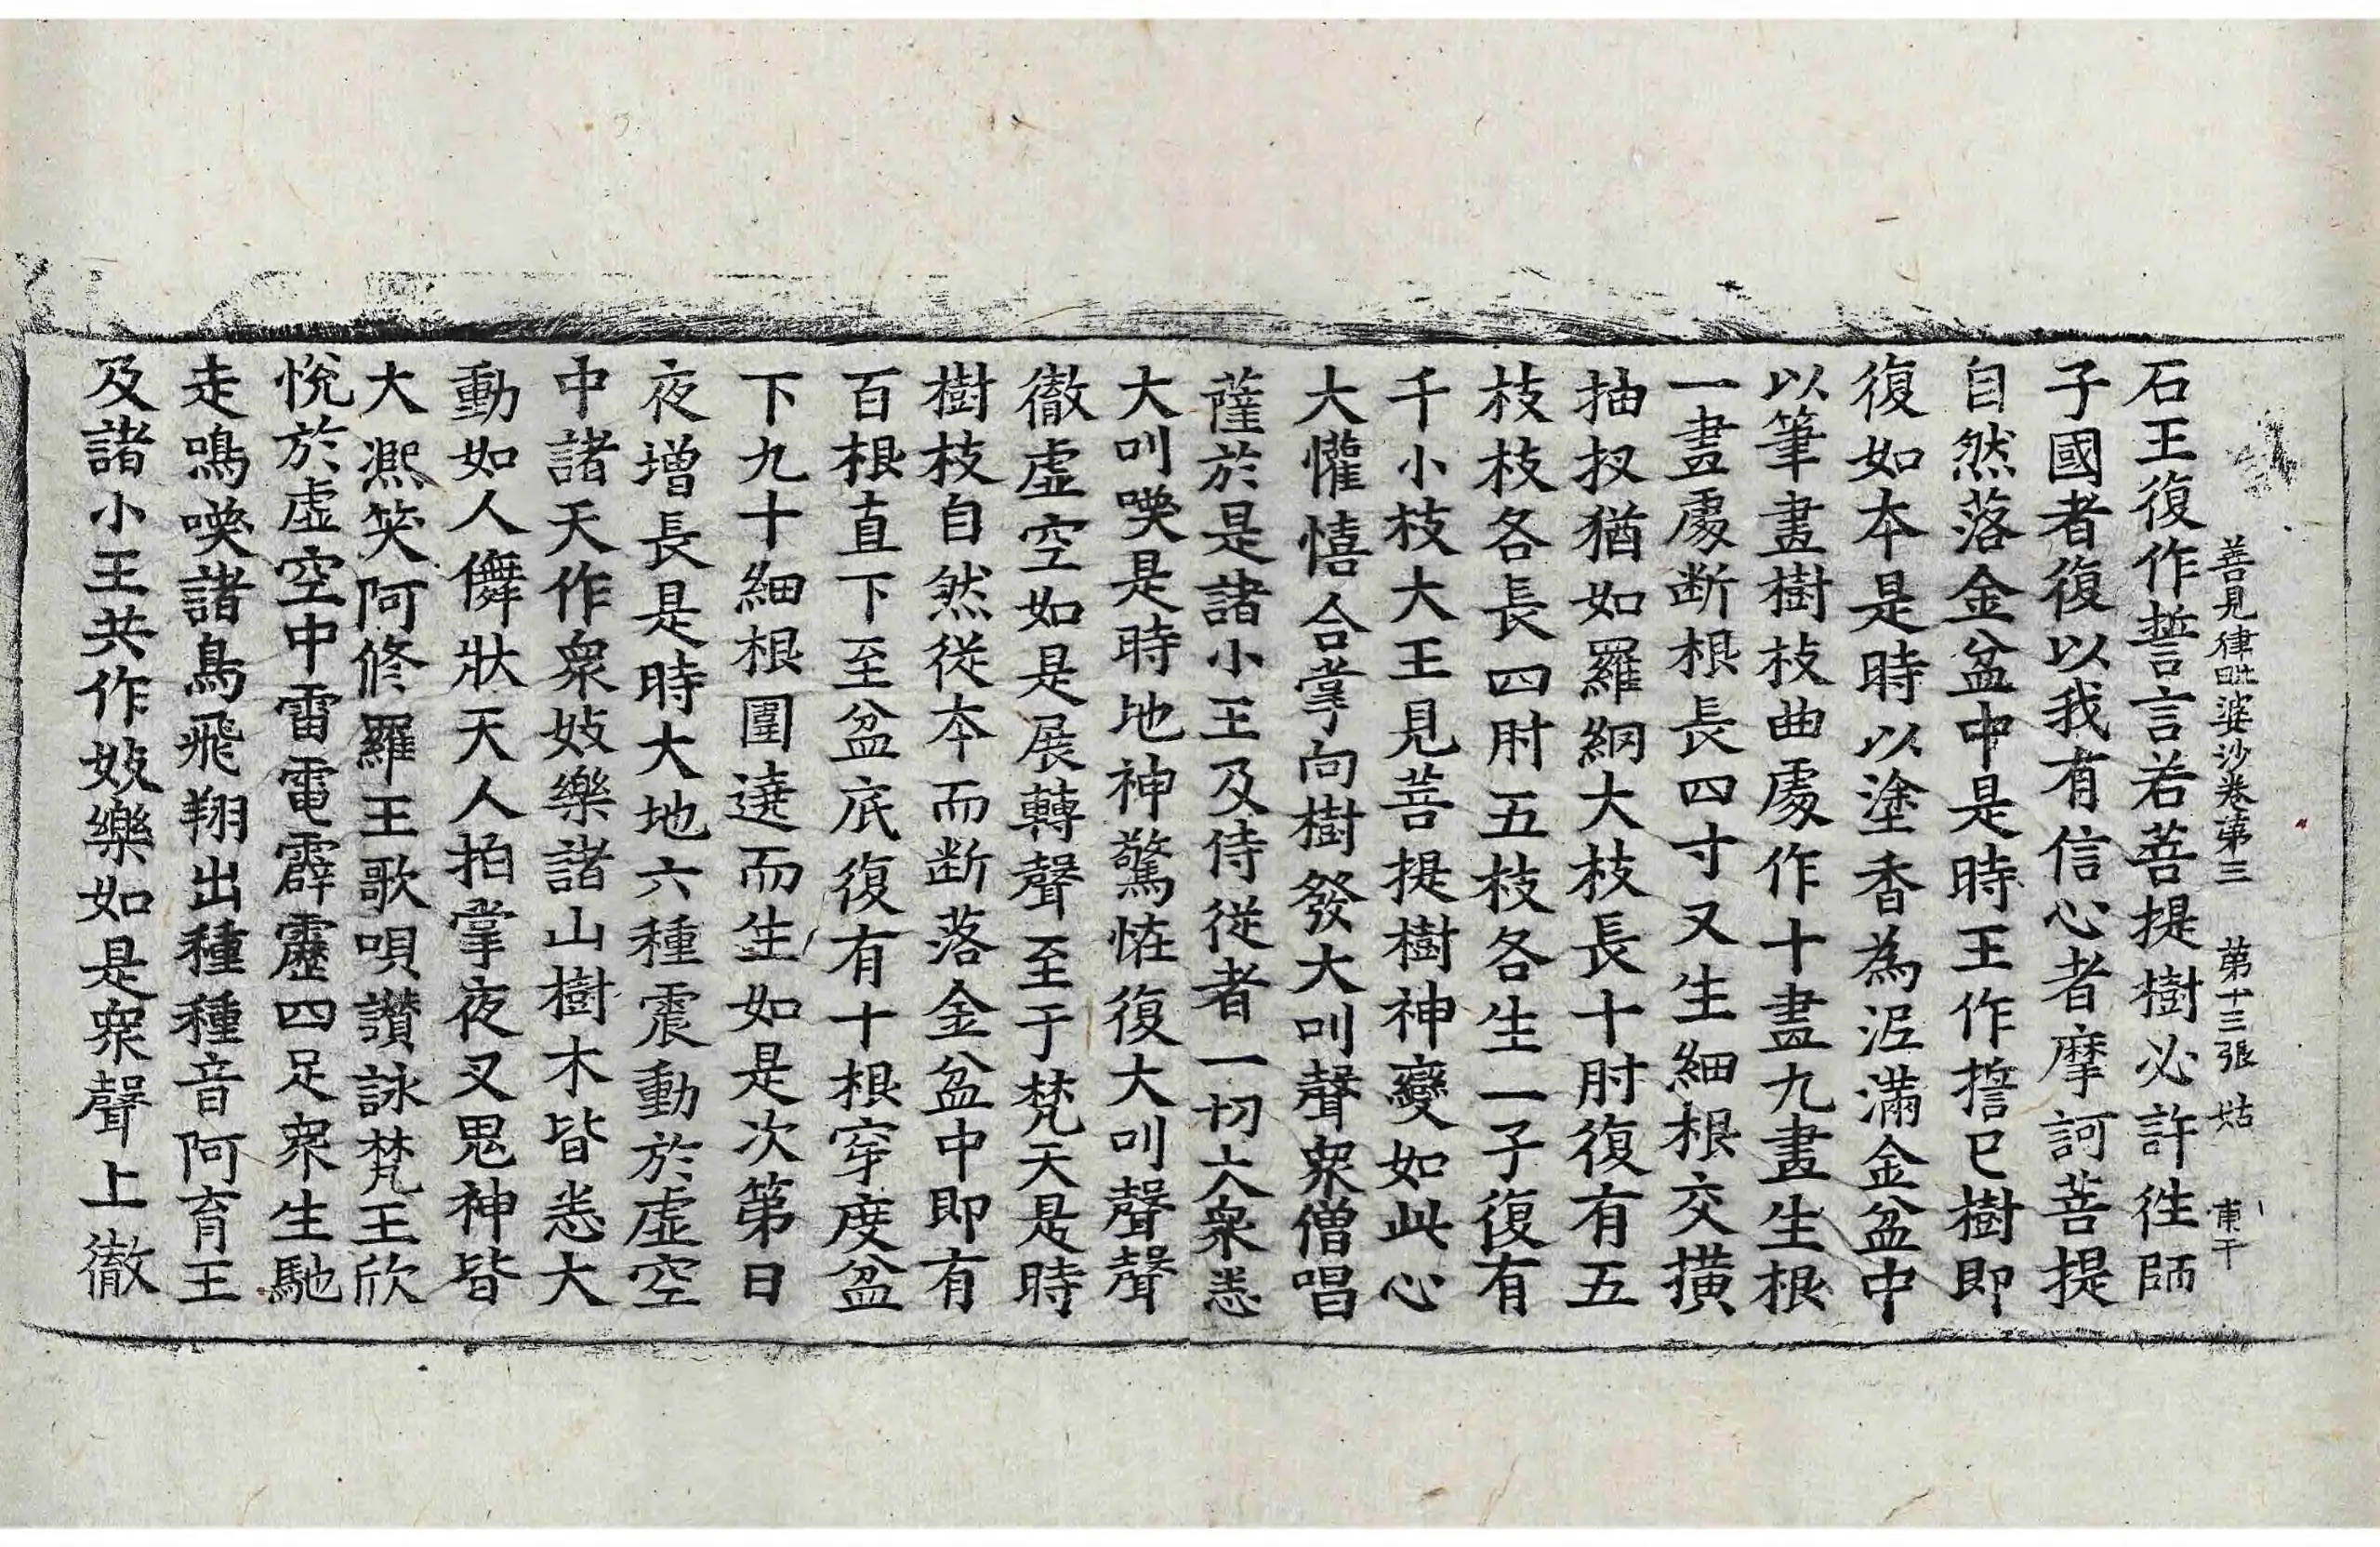 善見律毗婆沙卷第三 第十三張 姑
石王復作誓言若菩提樹必許徃師
子國者復以我有信心者摩訶菩提
自然落金盆中是時王作擔已樹即
復如本是時以塗香為泥滿金盆中
以筆畫樹枝曲處作十畫九畫生根
一畫處断根長四寸又生細根交撗
抽扠猶如羅網大枝長十肘復有五
枝枝各長四肘五枝各生一子復有
千小枝大王見菩提樹神變如此心
大懽憘合掌向樹發大叫聲衆僧唱
薩於是諸小王及侍從者一切大衆悉
大叫喚是時地神驚恠復大叫聲聲
徹虛空如是展轉聲至于梵天是時
樹枝自然從本而断落金盆中即有
百根直下至盆底復有十根穿度盆
下九十細根圍遶而生如是次第日
夜增長是時大地六種震動於虛空
中諸天作衆妓樂諸山樹木皆悉大
動如人儛狀天人拍掌夜叉鬼神皆
大凞笑阿修羅王歌唄讃詠梵王欣
悅於虛空中雷電霹靂四足衆生馳
走鳴喚諸鳥飛翔出種種音阿育王
及諸小王共作妓樂如是衆聲上徹